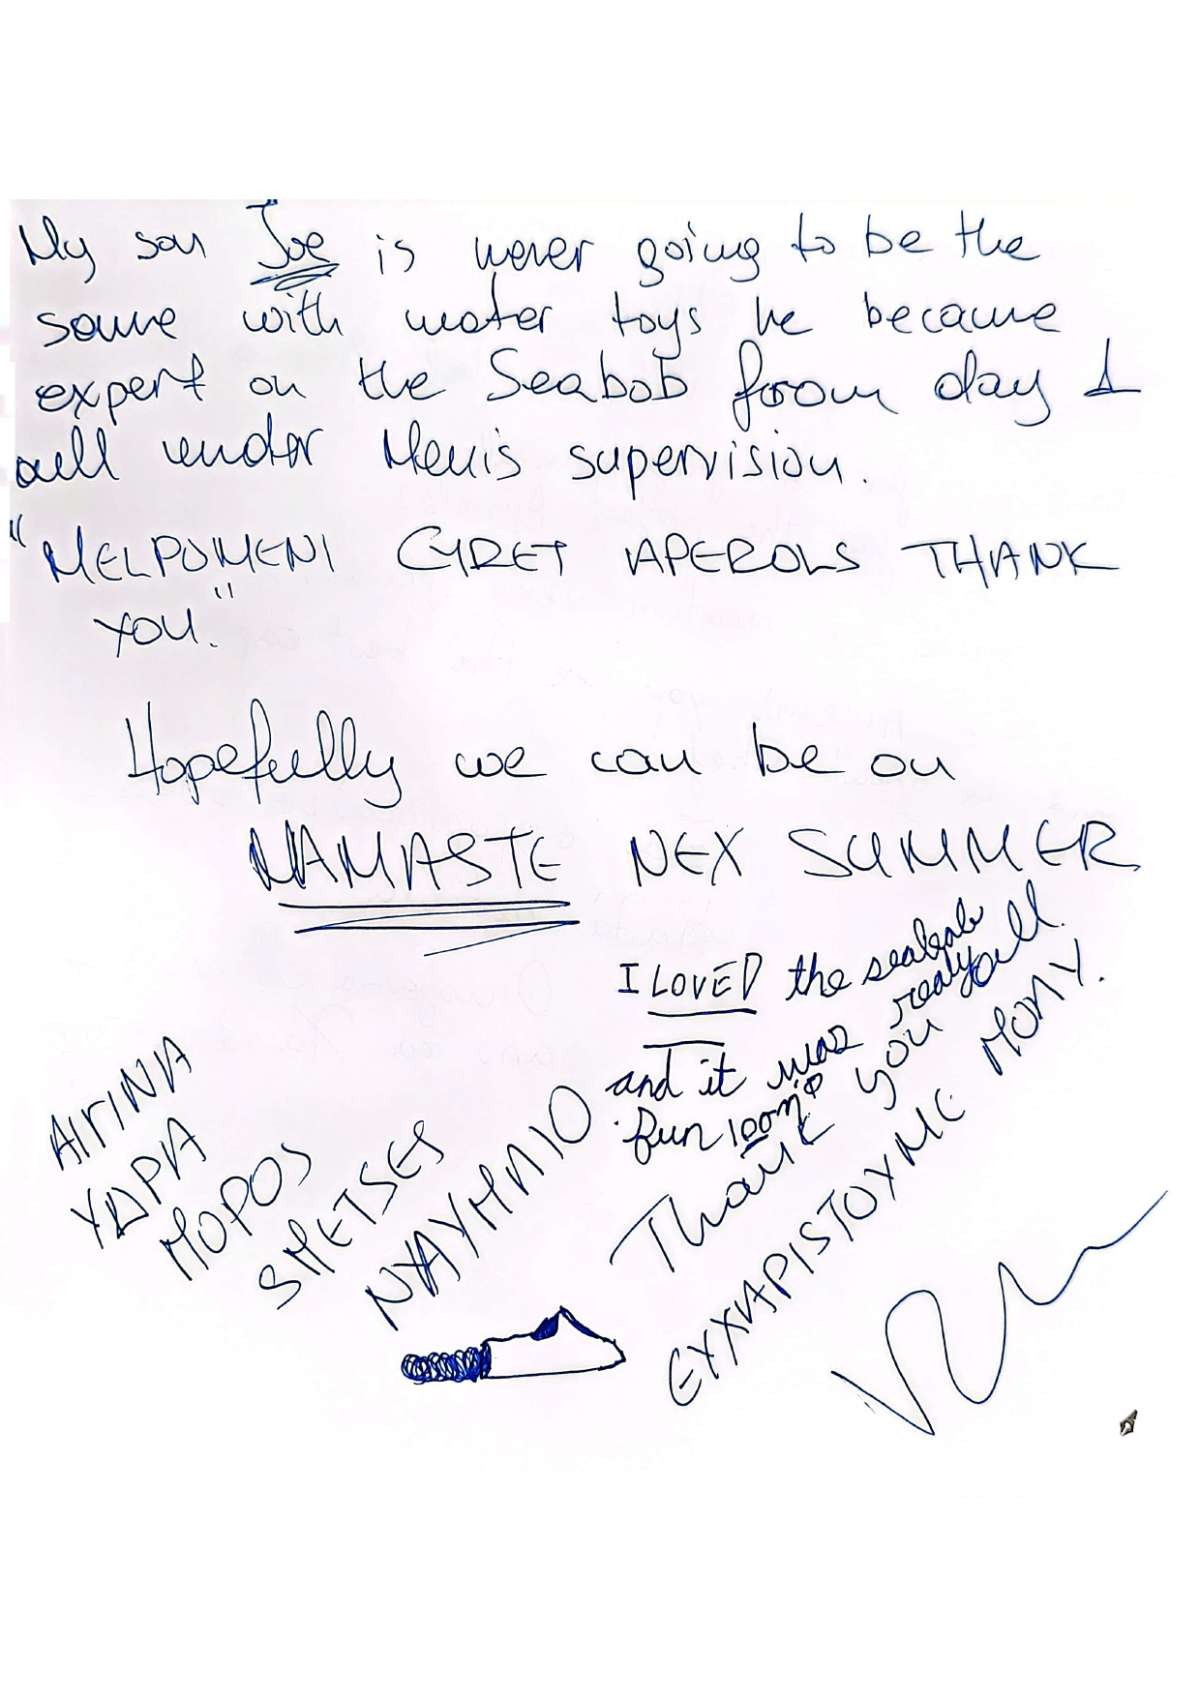 My son Joe is never going to be the
same with water toys he became
expert on the Seabob from day 1
all under Menis supervision.
"MELPOMENI GYRET APEROLS THANK
YOU."
Hopefully we can be on
NAMASTE NEX SUMMER
I LOVED the seabob
and it was really
fun
Thank you all.
ΕΥΧΑΡΙSTOYME MONY.
ΑΙΓΙΝΑ
ΥΔΡΑ
ΠΟΡΟS
SΠΕΤSΕS
ΝΑΥΠΛΙΟ